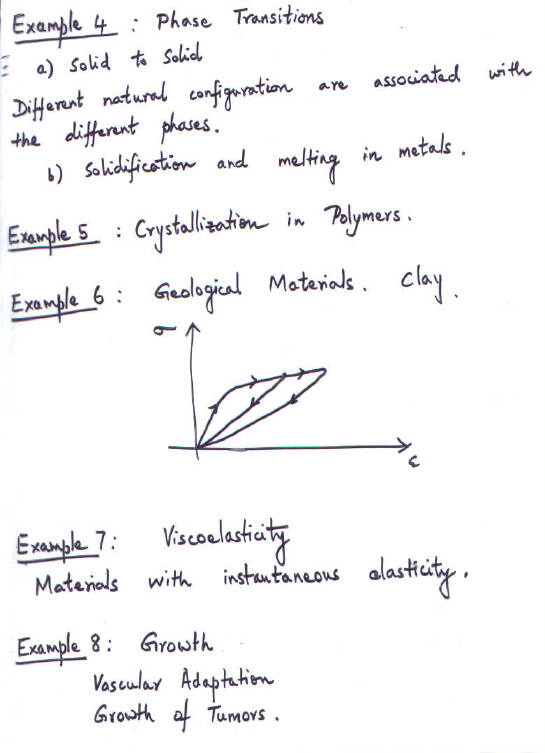 Example 4 : Phase Transitions
a) Solid to Solid
Different natural configuration are associated with
the different phases.
b) Solidification and melting in metals.
Example 5 : Crystallization in Polymers.
Example 6 : Geological Materials. Clay.
σ
ε
Example 7 : Viscoelasticity
Materials with instantaneous elasticity.
Example 8 : Growth
Vascular Adaptation
Growth of Tumors.